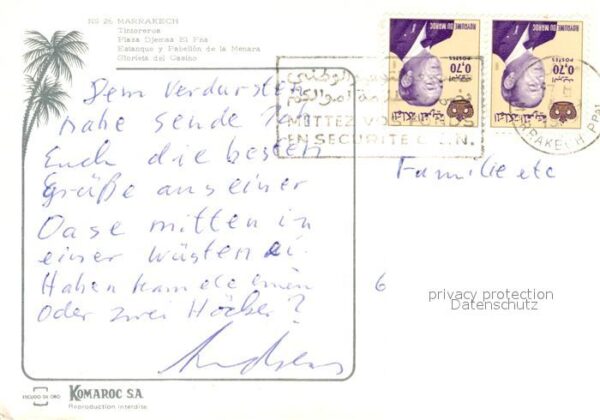 NS 26 MARRAKECH
Tintoreros
Plaza Djemaa El Fna
Estanque y Pabellón de la Menara
Glorieta del Casino
Dem Verdursten
nahe sende
Euch die besten
Grüße aus einer
Oase mitten in
einer Wüstenei.
Haben Kamele einen
oder zwei Höcker?
Andreas
ROYAUME DU MAROC
POSTES
0,70
ROYAUME DU MAROC
POSTES
0,70
METTEZ VOS FONDS
EN SECURITE C.E.N.
MARRAKECH PPAL
Familie etc
6
privacy protection
Datenschutz
ESCUDO DE ORO
KOMAROC S.A.
Reproduction interdite